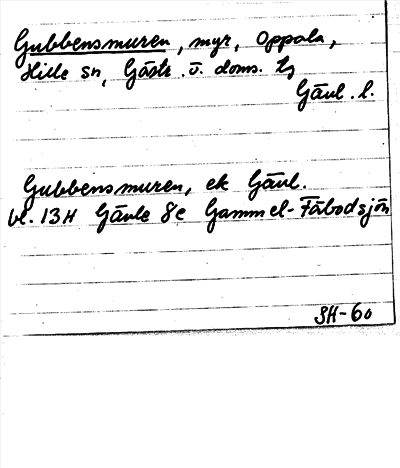 Gubbensmuren, myr, Oppala,
Hille sn, Gästr. ö. doms. tg
Gävl. l.
Gubbensmuren, ek Gävl.
bl. 13H Gävle 8c Gammel-Fäbodsjön
SH-60